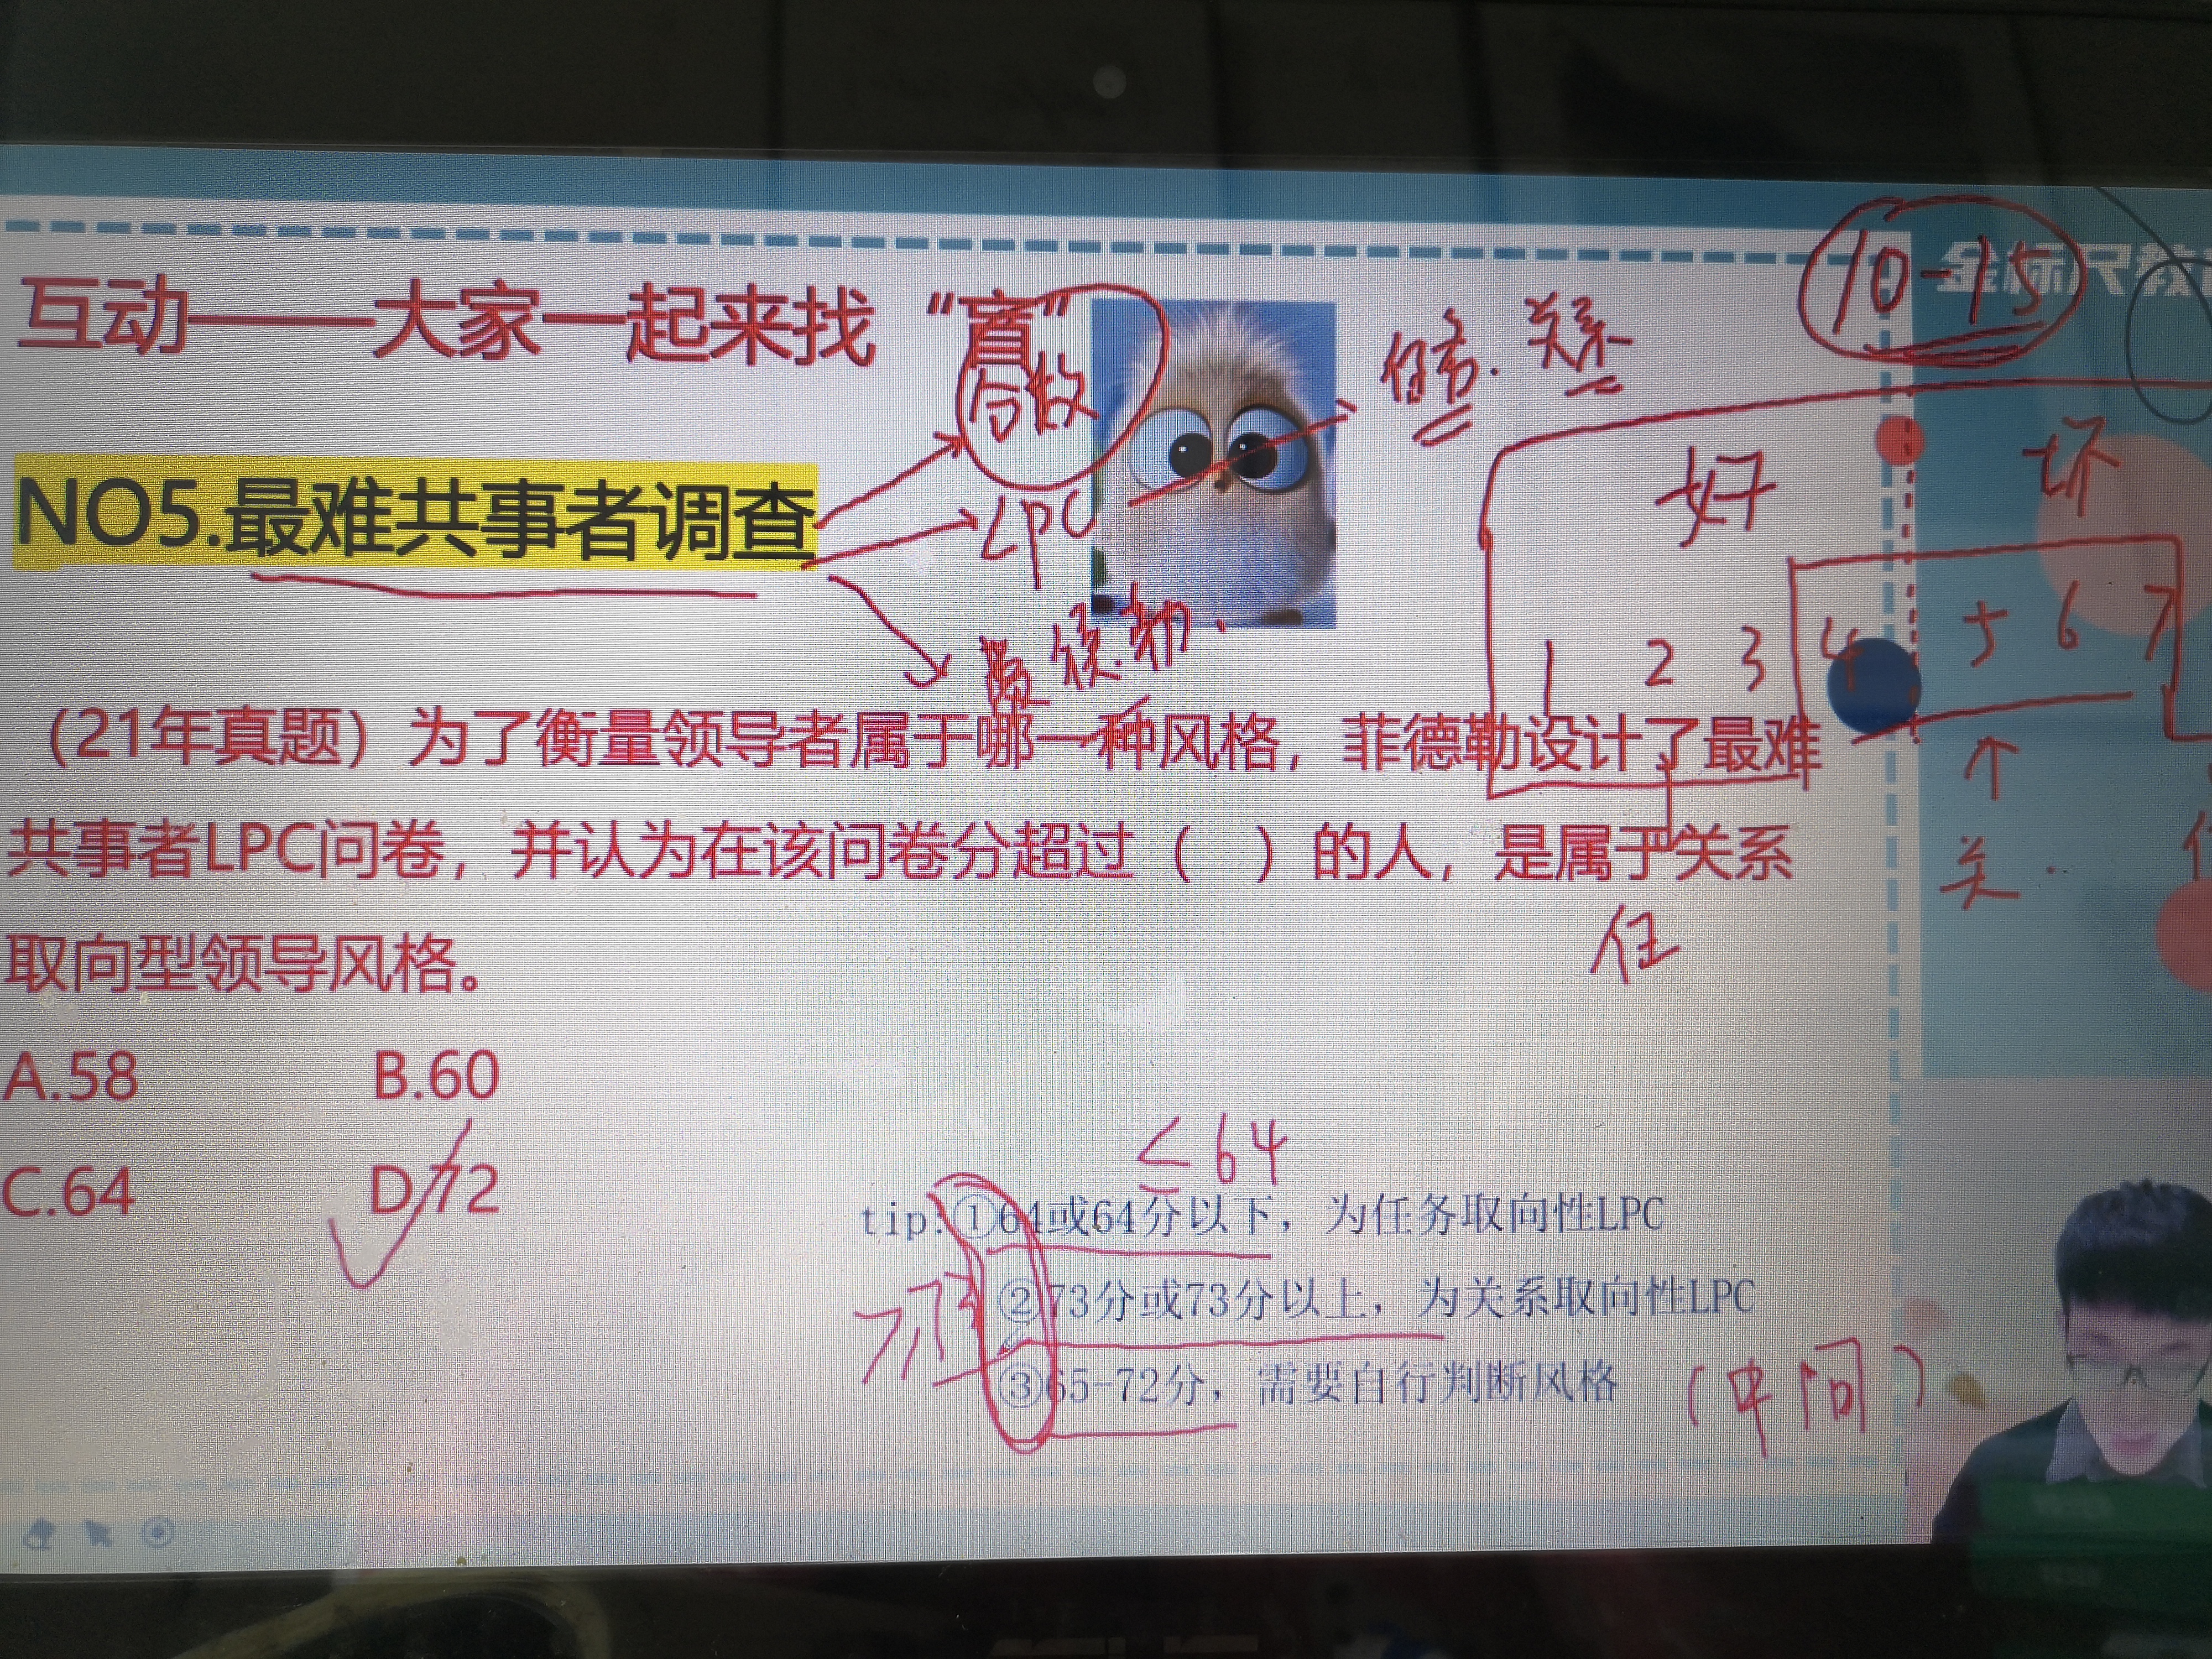 互动——大家一起来找“盲”
分数
任务.关系
10-15
金标尺教
好 坏
NO5.最难共事者调查
LPC
1 2 3 4 5 6 7
（21年真题）为了衡量领导者属于哪一种风格，菲德勒设计了最难
共事者LPC问卷，并认为在该问卷分超过（ ）的人，是属于关系
取向型领导风格。
关.
任
A.58 B.60
C.64 D.72
≤64
tip:①64或64分以下，为任务取向性LPC
②73分或73分以上，为关系取向性LPC
③65-72分，需要自行判断风格
（中间）